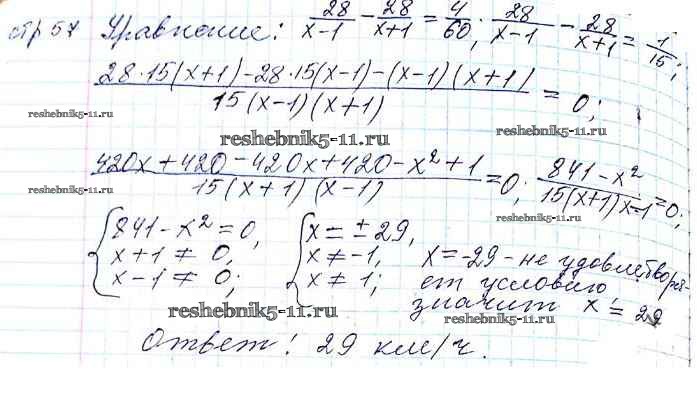 стр 57 Уравнение: 28/(x-1) - 28/(x+1) = 4/60; 28/(x-1) - 28/(x+1) = 1/15;
(28·15(x+1)-28·15(x-1)-(x-1)(x+1))/(15(x-1)(x+1)) = 0;
reshebnik5-11.ru
reshebnik5-11.ru
reshebnik5-11.ru
(420x+420-420x+420-x²+1)/(15(x+1)(x-1)) = 0; (841-x²)/(15(x+1)x-1) = 0;
reshebnik5-11.ru
reshebnik5-11.ru
{841-x²=0, {x=±29,
x+1≠0, x≠-1, x=-29 - не удовлетворя-
x-1≠0; x≠1; ет условию
значит x=29
reshebnik5-11.ru
reshebnik5-11.ru
Ответ: 29 км/ч.